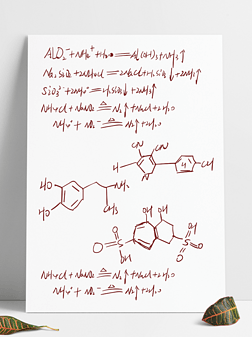 AlO₂⁻+NH₄⁺+H₂O═Al(OH)₃+NH₃↑
Na₂SiO₃+2NH₄Cl═2NaCl+H₂SiO₃↓+2NH₃↑
SiO₃²⁻+2NH₄⁺═H₂SiO₃↓+2NH₃↑
NH₄Cl+NaNO₂═N₂↑+NaCl+2H₂O
NH₄⁺+NO₂⁻═N₂↑+2H₂O
CN CN
H N H CH
HO NH₂
HO CH₃
OH OH OH
O S O S O
OH O
NH₄Cl+NaNO₂═N₂↑+NaCl+2H₂O
NH₄⁺+NO₂⁻═N₂↑+2H₂O